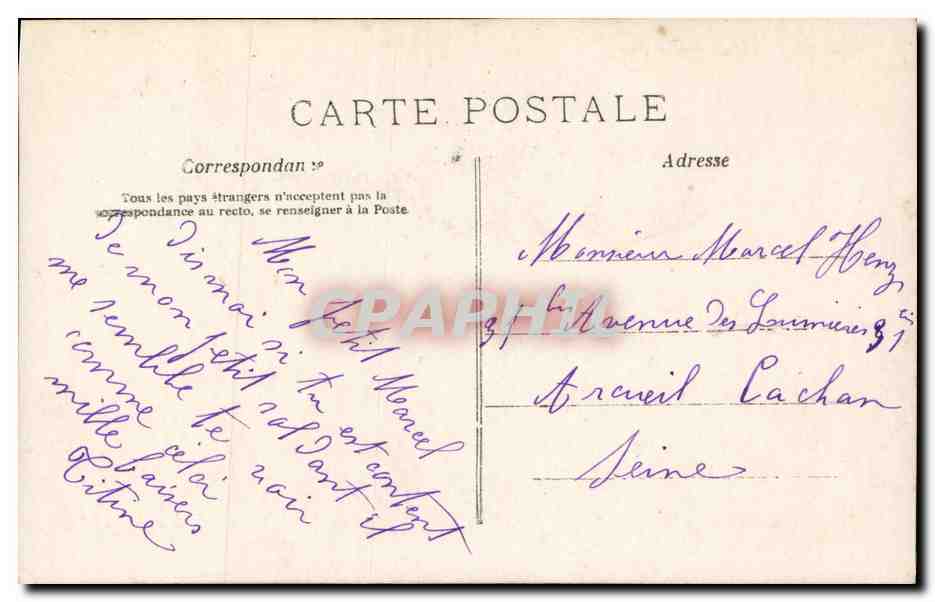 CARTE POSTALE
Correspondance
Adresse
Tous les pays étrangers n'acceptent pas la
correspondance au recto, se renseigner à la Poste.
Mon Petit Marcel
Dis moi si tu est content
de mon petit soldant il
me semble te voir
comme celoi
mille baisers
Titine
Monsieur Marcel Henz
31 bis Avenue des Lumières 31
Arcueil Cachan
Seine
CPAPHIL